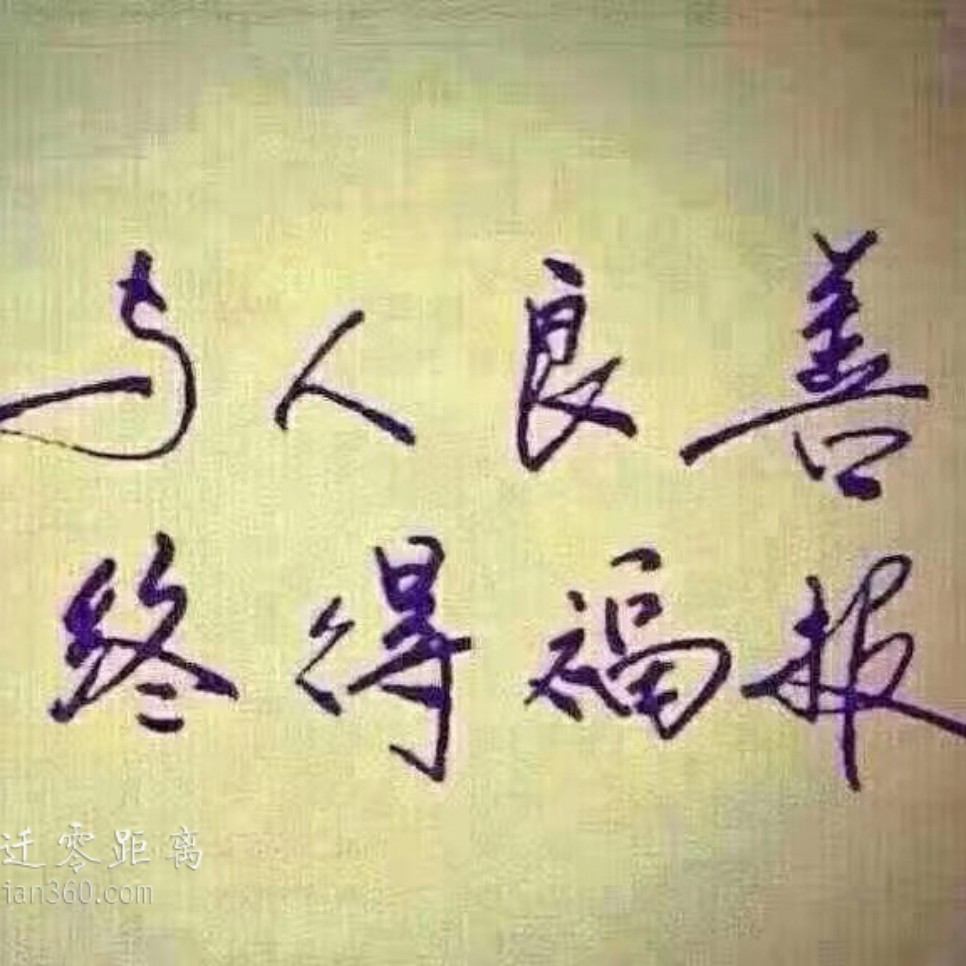 与人良善
终得福报
迁零距离
ian360.com